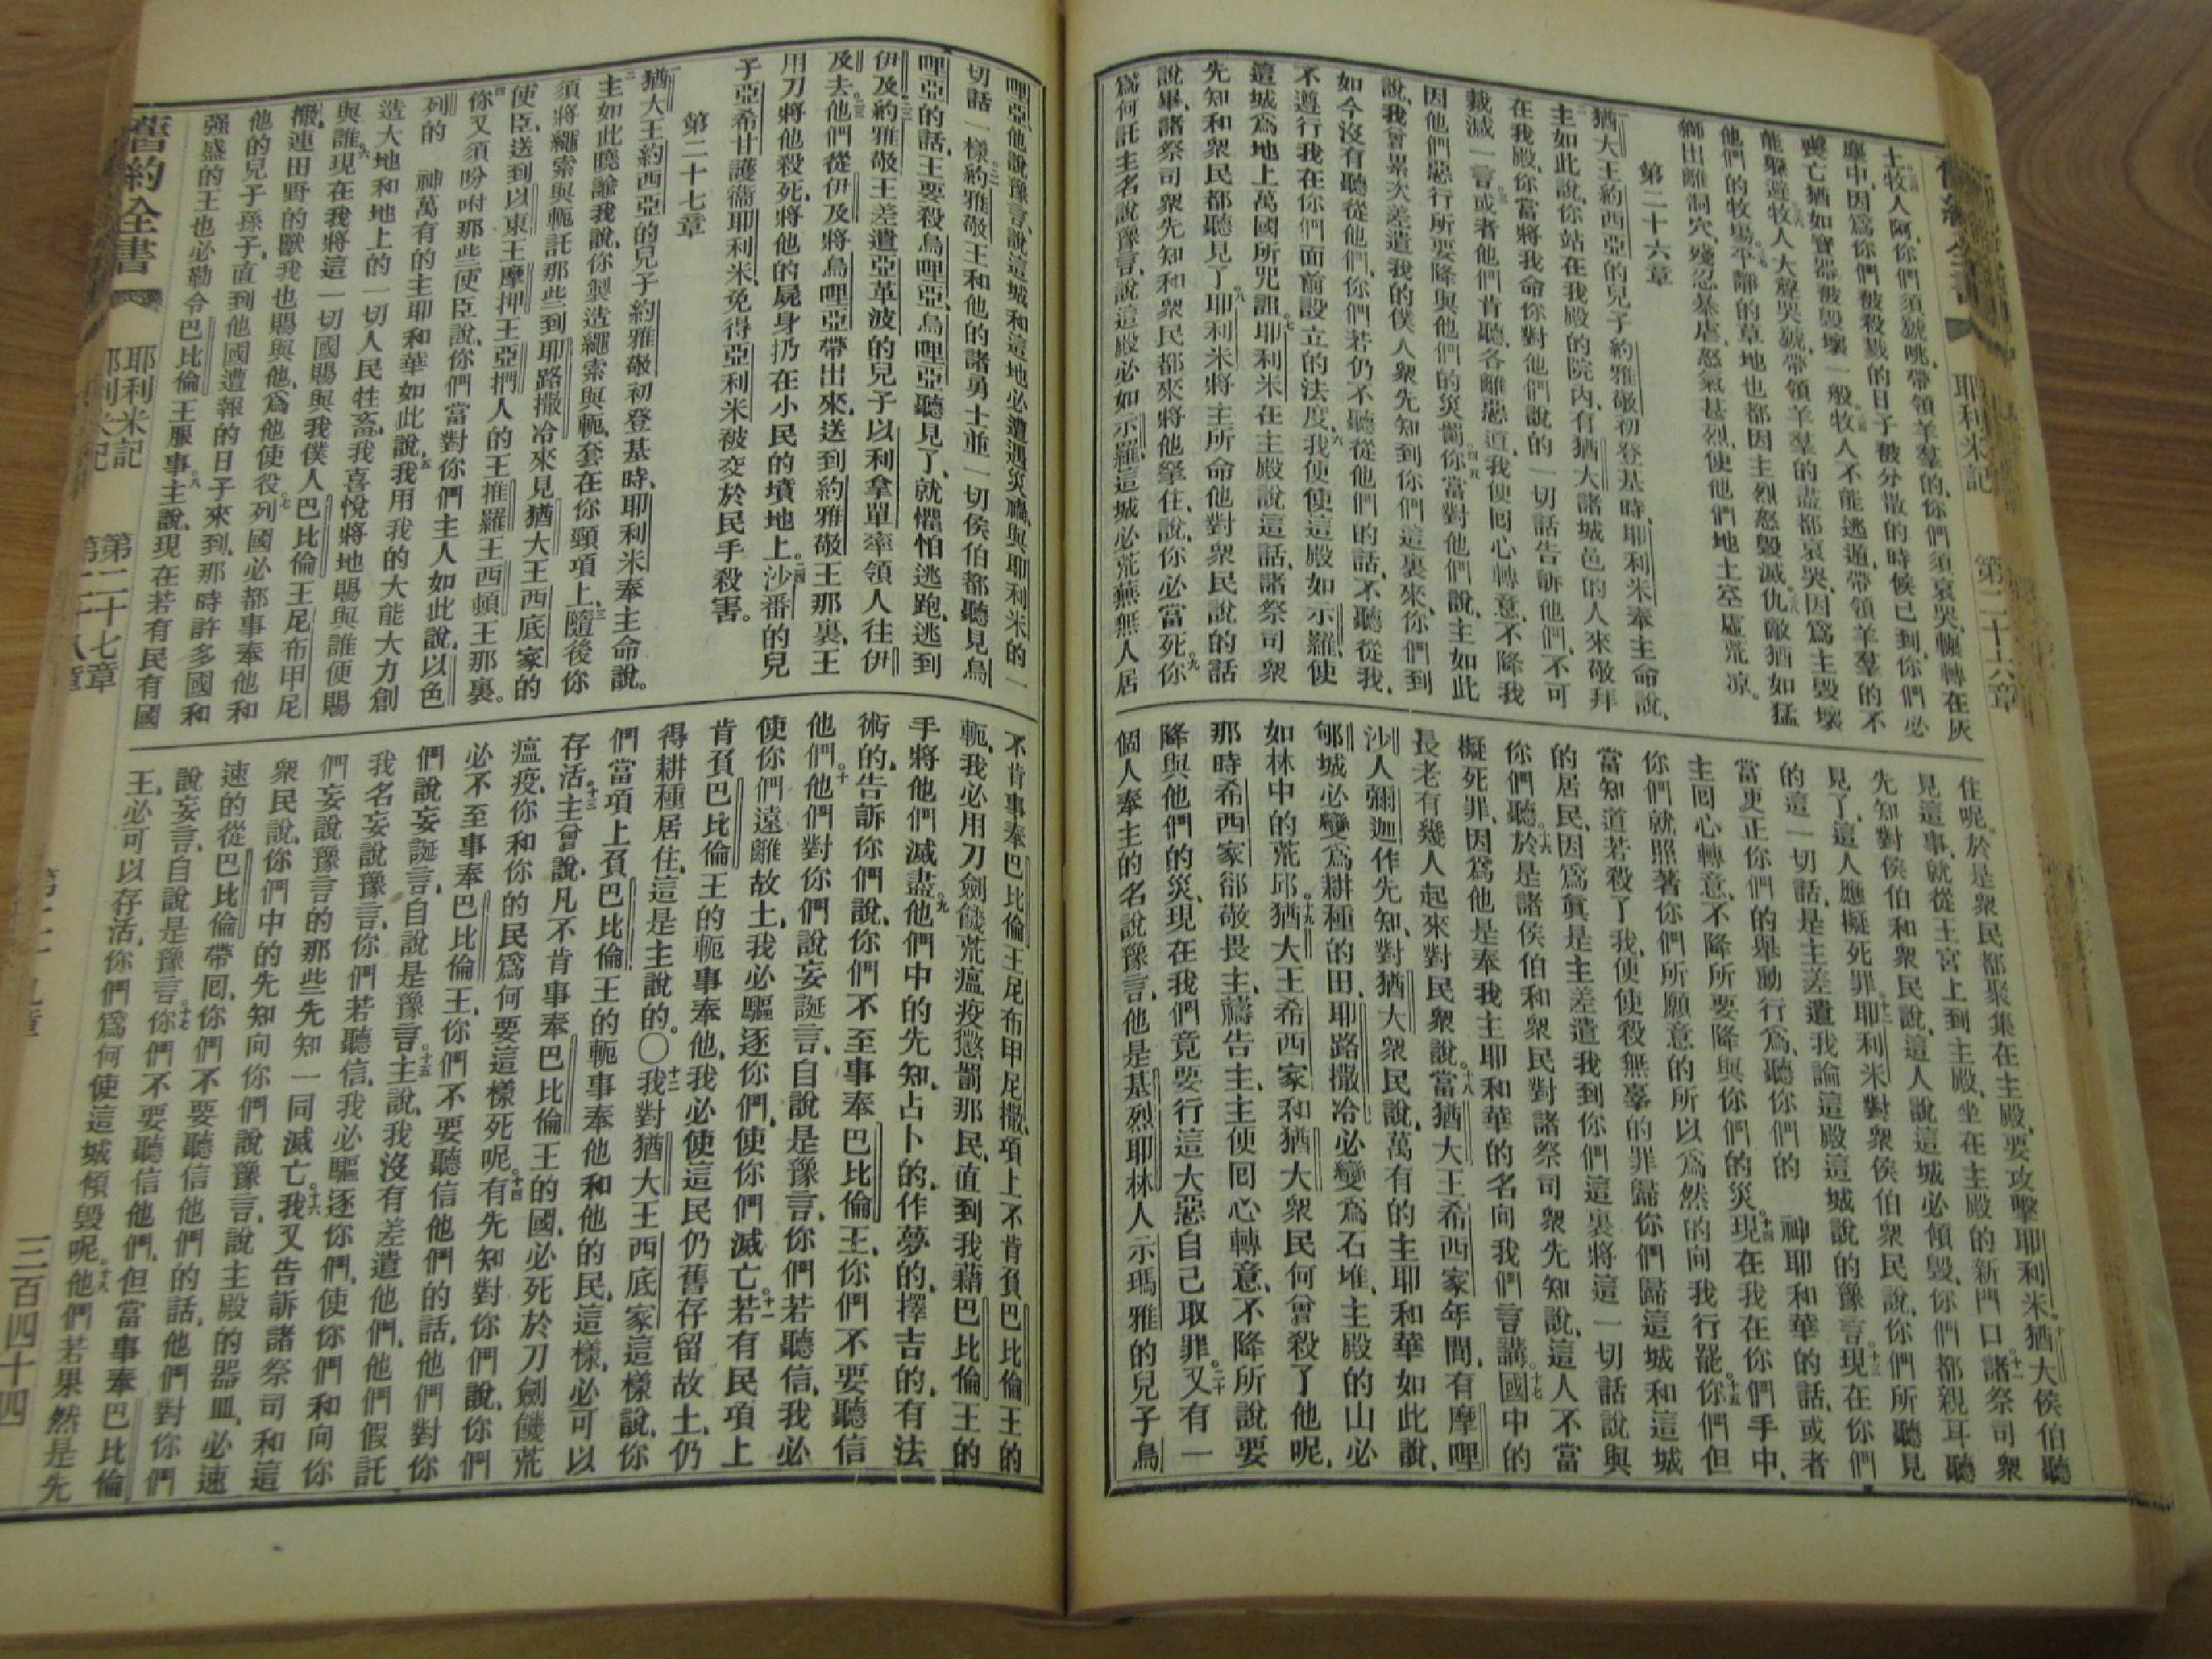 舊約全書
耶利米記
第二十六章
土牧人阿、你們須號咷、帶領羊羣的、你們須哀哭、輾轉在灰
塵中、因爲你們被殺戮的日子、被分散的時候已到、你們必
喪亡猶如寶器被毀壞一般、牧人不能逃遁、帶領羊羣的不
能躲避、牧人大聲哭號、帶領羊羣的盡都哀哭、因爲主毀壞
他們的牧場、平靜的草地也都因主烈怒毀滅。仇敵猶如猛
獅出離洞穴、殘忍暴虐、怒氣甚烈、使他們地土空虛荒凉。
第二十六章
猶大王約西亞的兒子約雅敬初登基時、耶利米奉主命說、
主如此說、你站在我殿的院內、有猶大諸城邑的人來敬拜
在我殿、你當將我命你對他們說的一切話告訴他們、不可
裁減一言、或者他們肯聽、各離惡道、我便囘心轉意、不降我
因他們惡行所要降與他們的災罰。你當對他們說、主如此
說、我曾累次差遣我的僕人衆先知到你們這裏來、你們到
如今沒有聽從他們、你們若仍不聽從他們的話、不聽從我、
不遵行我在你們面前設立的法度、我便使這殿如示羅、使
這城爲地上萬國所咒詛。耶利米在主殿說這話、諸祭司衆
先知和衆民都聽見了。耶利米將主所命他對衆民說的話
說畢、諸祭司衆先知和衆民都來將他拏住、說、你必當死、你
爲何託主名說豫言、說這殿必如示羅、這城必荒蕪無人居
住呢。於是衆民都聚集在主殿、要攻擊耶利米。猶大侯伯聽
見這事、就從王宮上到主殿、坐在主殿的新門口。諸祭司衆
先知對侯伯和衆民說、這人說這城必傾毀、你們都親耳聽
見了、這人應擬死罪。耶利米對衆侯伯衆民說、你們所聽見
的這一切話、是主差遣我論這殿這城說的豫言。現在你們
當更正你們的舉動行爲、聽你們的　神耶和華的話、或者
主囘心轉意、不降所要降與你們的災。現在我在你們手中、
你們就照著你們所願意的所以爲然的向我行罷。你們但
當知道若殺了我、便使殺無辜的罪歸你們歸這城和這城
的居民、因爲眞是主差遣我到你們這裏將這一切話說與
你們聽。於是諸侯伯和衆民對諸祭司衆先知說、這人不當
擬死罪、因爲他是奉我主耶和華的名向我們言講。國中的
長老有幾人起來對民衆說。當猶大王希西家年間、有摩哩
沙人彌迦作先知、對猶大衆民說、萬有的主耶和華如此說、
郇城必變爲耕種的田、耶路撒冷必變爲石堆、主殿的山必
如林中的荒邱。猶大王希西家和猶大衆民何曾殺了他呢、
那時希西家卻敬畏主、禱告主、主便囘心轉意、不降所說要
降與他們的災、現在我們竟要行這大惡自己取罪。又有一
個人奉主的名說豫言、他是基烈耶林人示瑪雅的兒子烏
哩亞、他說豫言、說這城和這地必遭遇災禍、與耶利米的一
切話一樣。約雅敬王和他的諸勇士並一切侯伯都聽見烏
哩亞的話、王要殺烏哩亞、烏哩亞聽見了、就懼怕逃跑、逃到
伊及。約雅敬王差遣亞革波的兒子以利拿單率領人往伊
及去。他們從伊及將烏哩亞帶出來、送到約雅敬王那裏、王
用刀將他殺死、將他的屍身扔在小民的墳地上。沙番的兒
子亞希甘護衞耶利米、免得亞利米被交於民手殺害。
第二十七章
猶大王約西亞的兒子約雅敬初登基時、耶利米奉主命說。
主如此曉諭我說、你製造繩索與軛、套在你頸項上、隨後你
須將繩索與軛託那些到耶路撒冷來見猶大王西底家的
使臣、送到以東王摩押王亞捫人的王推羅王西頓王那裏。
你又須吩咐那些使臣說、你們當對你們主人如此說、以色
列的　神萬有的主耶和華如此說、我用我的大能大力創
造大地和地上的一切人民牲畜、我喜悅將地賜與誰便賜
與誰。現在我將這一切國賜與我僕人巴比倫王尼布甲尼
撒、連田野的獸我也賜與他、爲他使役。列國必都事奉他和
他的兒子孫子、直到他國遭報的日子來到、那時許多國和
强盛的王也必勒令巴比倫王服事。主說、現在若有民有國
不肯事奉巴比倫王尼布甲尼撒、項上不肯負巴比倫王的
軛、我必用刀劍饑荒瘟疫懲罰那民、直到我藉巴比倫王的
手將他們滅盡。他們中的先知、占卜的、作夢的、擇吉的、有法
術的、告訴你們說、你們不至事奉巴比倫王、你們不要聽信
他們。他們對你們說妄誕言、自說是豫言、你們若聽信、我必
使你們遠離故土、我必驅逐你們、使你們滅亡。若有民項上
肯負巴比倫王的軛事奉他、我必使這民仍舊存留故土、仍
得耕種居住、這是主說的。〇我對猶大王西底家這樣說、你
們當項上負巴比倫王的軛事奉他和他的民、這樣、必可以
存活。主曾說、凡不肯事奉巴比倫王的國、必死於刀劍饑荒
瘟疫、你和你的民爲何要這樣死呢。有先知對你們說、你們
必不至事奉巴比倫王、你們不要聽信他們的話、他們對你
們說妄誕言、自說是豫言。主說、我沒有差遣他們、他們假託
我名妄說豫言、你們若聽信、我必驅逐你們、使你們和向你
們妄說豫言的那些先知一同滅亡。我又告訴諸祭司和這
衆民說、你們中的先知向你們說豫言、說主殿的器皿、必速
速的從巴比倫帶囘、你們不要聽信他們的話、他們對你們
說妄言、自說是豫言。你們不要聽信他們、但當事奉巴比倫
王、必可以存活、你們爲何使這城傾毀呢。他們若果然是先
舊約全書
耶利米記
第二十七章
三百四十四